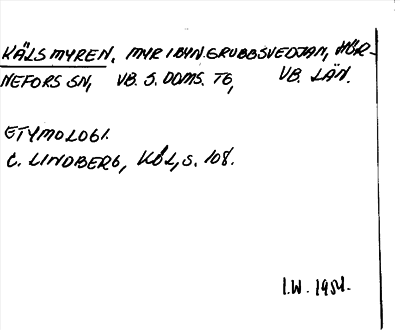 KÄLSMYREN, MYR I BYN GRUBBSVEDJAN, HÖR-
NEFORS SN, VB. S. DOMS. TG, VB. LÄN.
ETYMOLOGI.
C. LINDBERG, KÖL, S. 108.
I.W. 1951.